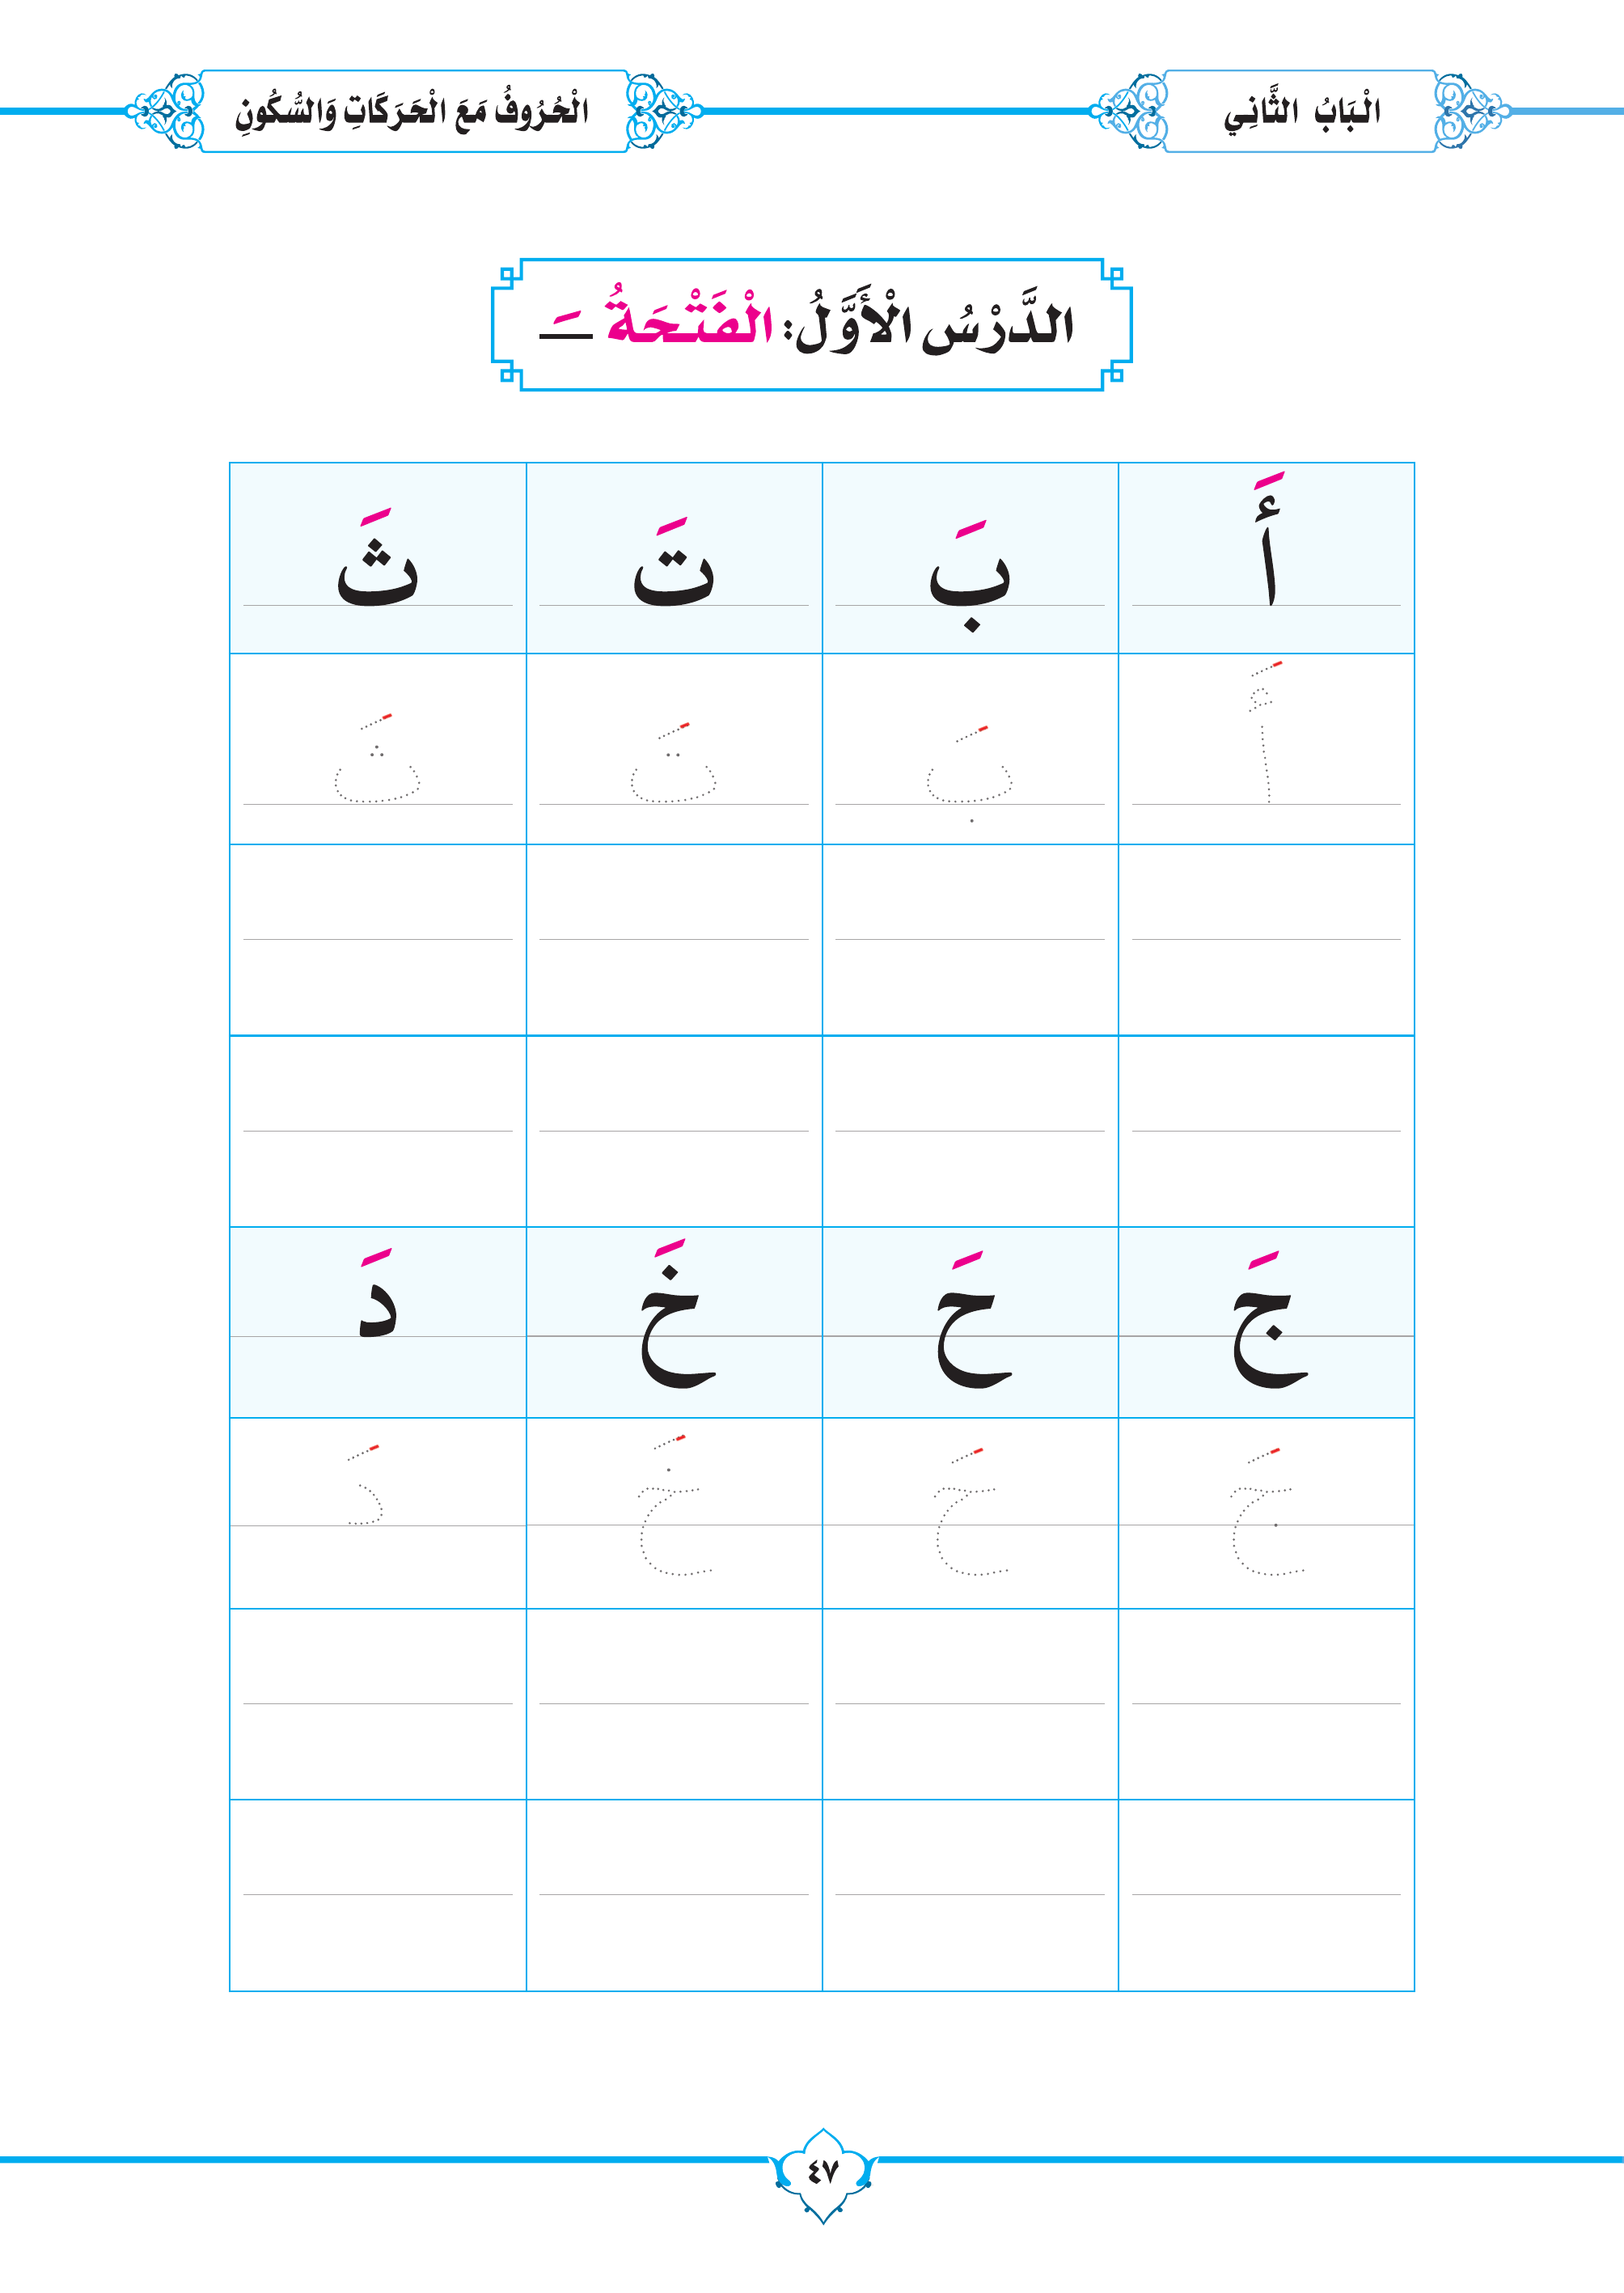 الْبَابُ الثَّانِي
الْحُرُوفُ مَعَ الْحَرَكَاتِ وَالسُّكُونِ
الدَّرْسُ الْأَوَّلُ: الْفَتْحَةُ ـَ
أَ بَ تَ ثَ
أَ بَ تَ ثَ
جَ حَ خَ دَ
جَ حَ خَ دَ
٤٧